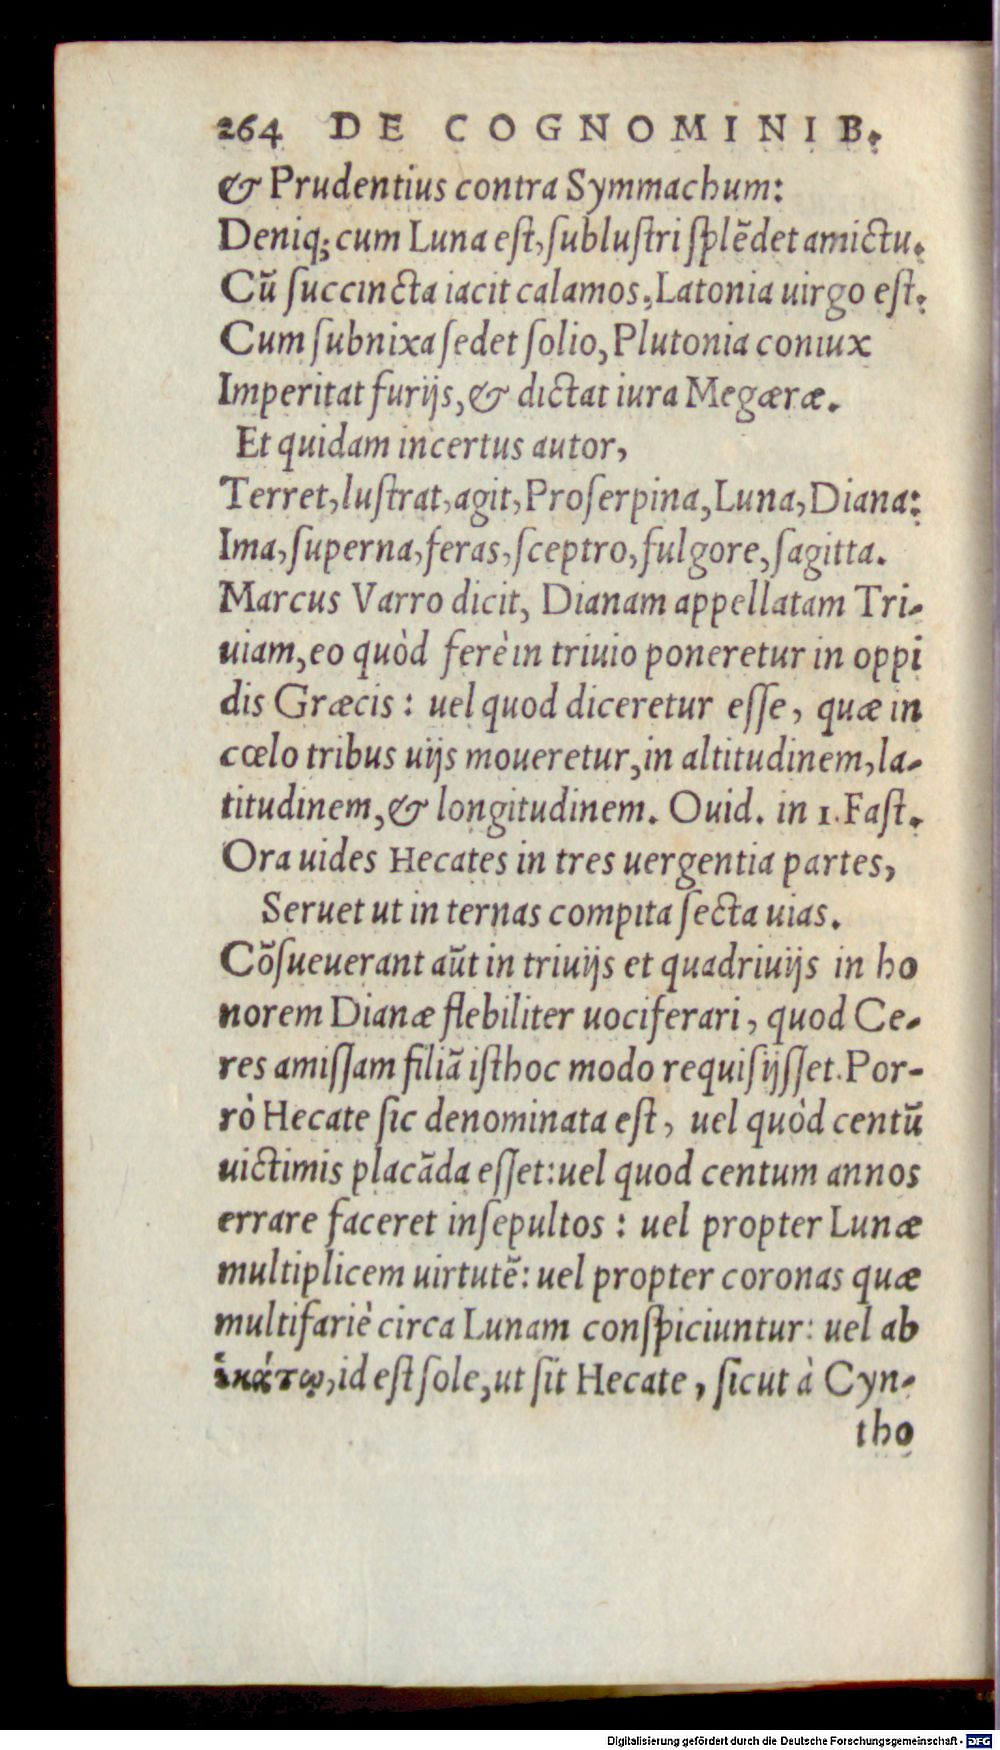 264 DE COGNOMINIB.
& Prudentius contra Symmachum:
Deniq; cum Luna est, sublustri splẽdet amictu.
Cũ succincta iacit calamos, Latonia uirgo est.
Cum subnixa sedet solio, Plutonia coniux
Imperitat furijs, & dictat iura Megæræ.
Et quidam incertus autor,
Terret, lustrat, agit, Proserpina, Luna, Diana:
Ima, superna, feras, sceptro, fulgore, sagitta.
Marcus Varro dicit, Dianam appellatam Tri-
uiam, eo quòd ferè in triuio poneretur in oppi
dis Græcis: uel quod diceretur esse, quæ in
cœlo tribus uijs moueretur, in altitudinem, la-
titudinem, & longitudinem. Ouid. in 1. Fast.
Ora uides Hecates in tres uergentia partes,
Seruet ut in ternas compita secta uias.
Cõsueuerant aũt in triuijs et quadriuijs in ho
norem Dianæ flebiliter uociferari, quod Ce-
res amissam filiã isthoc modo requisijsset. Por-
rò Hecate sic denominata est, uel quòd centũ
uictimis placãda esset: uel quod centum annos
errare faceret insepultos: uel propter Lunæ
multiplicem uirtutẽ: uel propter coronas quæ
multifariè circa Lunam conspiciuntur: uel ab
ἑκάτῳ, id est sole, ut sit Hecate, sicut à Cyn-
tho
Digitalisierung gefördert durch die Deutsche Forschungsgemeinschaft - DFG